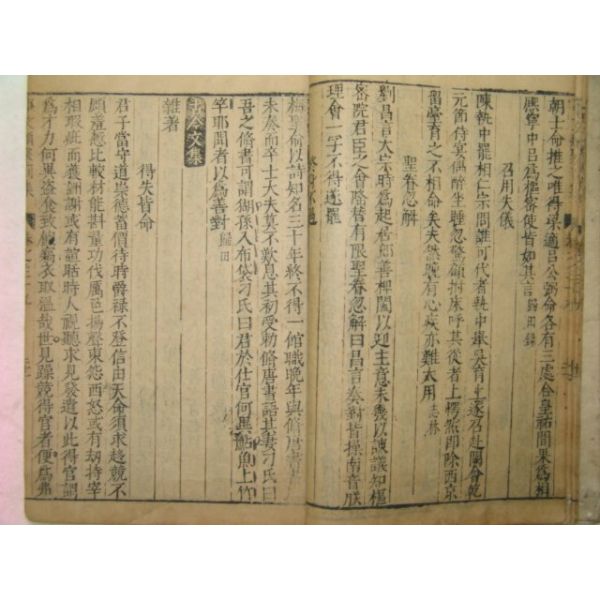 朝士命推之唯得梁適呂公弼命各有三處合皇祐間果為相
熙寧中呂為樞密使皆如其言 歸田錄
召用失儀
陳執中罷相仁宗問誰可代者執中舉吳育上遂召赴闕會乾
元節侍宴偶醉坐睡忽驚顧拊床呼其從者上愕然即除西京
留臺育之不相命矣夫然晚有心疾亦難大用 志林
聖眷忽解
劉昌言太宗時為起居郎善捭闔以迎主意未幾以諫議知樞
密院君臣之會隆替有限聖眷忽解曰昌言奏對皆操南音朕
理會一字不得遂罷
梅聖俞以詩知名三十年終不得一館職晚年與修唐書
未奏而卒士大夫莫不歎息其初受勑脩唐書語其妻刁氏曰
吾之脩書可謂猢孫入布袋刁氏曰君於仕宦何異鮎魚上竹
竿耶聞者以為善對 歸田
古今文集
雜著
得失皆命
君子當守道崇德蓄價待時爵禄不登信由天命須求趨競不
顧羞慙比較材能斟量功伐厲色揚聲東怨西怒或有劫持宰
相瑕疵而獲酬謝或有諠聒時人視聽求見發遣以此得官謂
為才力何異盜食致飽竊衣取溫哉世見躁競得官者便為弗